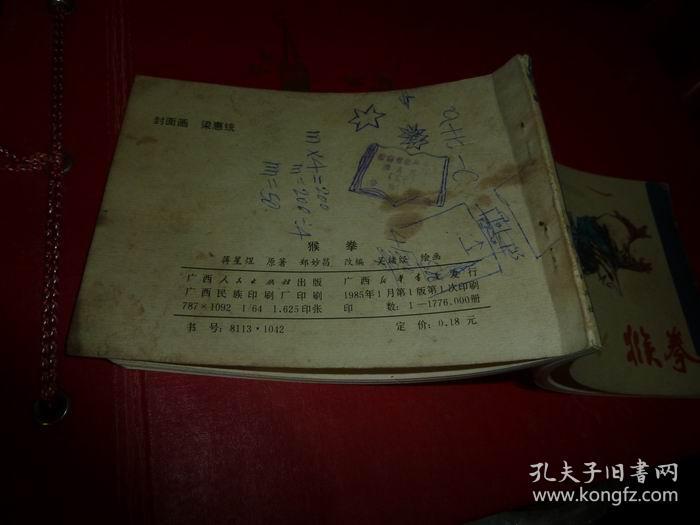 封面画 梁惠统
m×4=200
m=200÷4
m=50
猴 拳
蒋星煜 原著 郑妙昌 改编 吴绪经 绘画
广西人民出版社出版 广西新华书店发行
广西民族印刷厂印刷 1985年1月第1版第1次印刷
787×1092 1/64 1.625印张 印 数:1—1776.000册
书 号:8113·1042 定 价:0.18 元
猴拳
孔夫子旧书网
www.kongfz.com